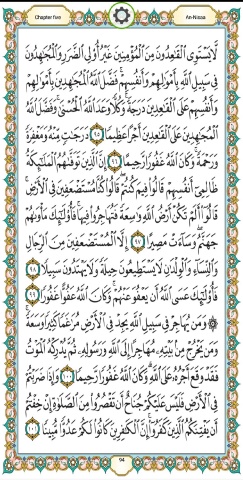 Chapter five
An-Nissa
لَّا يَسْتَوِى الْقَاعِدُونَ مِنَ الْمُؤْمِنِينَ غَيْرُ أُولِى الضَّرَرِ وَالْمُجَاهِدُونَ
فِى سَبِيلِ اللَّهِ بِأَمْوَالِهِمْ وَأَنفُسِهِمْ فَضَّلَ اللَّهُ الْمُجَاهِدِينَ بِأَمْوَالِهِمْ
وَأَنفُسِهِمْ عَلَى الْقَاعِدِينَ دَرَجَةً وَكُلًّا وَعَدَ اللَّهُ الْحُسْنَى وَفَضَّلَ اللَّهُ
الْمُجَاهِدِينَ عَلَى الْقَاعِدِينَ أَجْرًا عَظِيمًا ٩٥ دَرَجَاتٍ مِّنْهُ وَمَغْفِرَةً
وَرَحْمَةً وَكَانَ اللَّهُ غَفُورًا رَّحِيمًا ٩٦ إِنَّ الَّذِينَ تَوَفَّاهُمُ الْمَلَائِكَةُ
ظَالِمِى أَنفُسِهِمْ قَالُوا فِيمَ كُنتُمْ قَالُوا كُنَّا مُسْتَضْعَفِينَ فِى الْأَرْضِ
قَالُوا أَلَمْ تَكُنْ أَرْضُ اللَّهِ وَاسِعَةً فَتُهَاجِرُوا فِيهَا فَأُولَئِكَ مَأْوَاهُمْ
جَهَنَّمُ وَسَاءَتْ مَصِيرًا ٩٧ إِلَّا الْمُسْتَضْعَفِينَ مِنَ الرِّجَالِ
وَالنِّسَاءِ وَالْوِلْدَانِ لَا يَسْتَطِيعُونَ حِيلَةً وَلَا يَهْتَدُونَ سَبِيلًا ٩٨
فَأُولَئِكَ عَسَى اللَّهُ أَن يَعْفُوَ عَنْهُمْ وَكَانَ اللَّهُ عَفُوًّا غَفُورًا ٩٩
۞ وَمَن يُهَاجِرْ فِى سَبِيلِ اللَّهِ يَجِدْ فِى الْأَرْضِ مُرَاغَمًا كَثِيرًا وَسَعَةً
وَمَن يَخْرُجْ مِن بَيْتِهِ مُهَاجِرًا إِلَى اللَّهِ وَرَسُولِهِ ثُمَّ يُدْرِكْهُ الْمَوْتُ
فَقَدْ وَقَعَ أَجْرُهُ عَلَى اللَّهِ وَكَانَ اللَّهُ غَفُورًا رَّحِيمًا ١٠٠ وَإِذَا ضَرَبْتُمْ
فِى الْأَرْضِ فَلَيْسَ عَلَيْكُمْ جُنَاحٌ أَن تَقْصُرُوا مِنَ الصَّلَاةِ إِنْ خِفْتُمْ
أَن يَفْتِنَكُمُ الَّذِينَ كَفَرُوا إِنَّ الْكَافِرِينَ كَانُوا لَكُمْ عَدُوًّا مُّبِينًا ١٠١
94